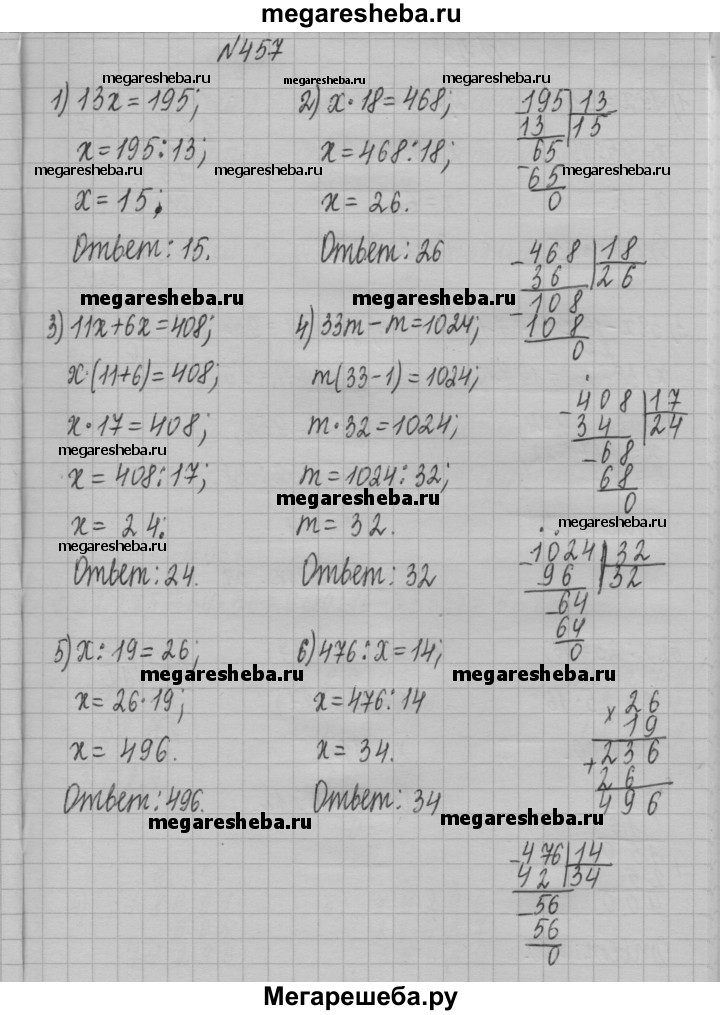 megaresheba.ru
№457
megaresheba.ru megaresheba.ru megaresheba.ru
1) 13x=195; 2) x·18=468;
x=195:13; x=468:18;
megaresheba.ru megaresheba.ru megaresheba.ru
x=15; x=26.
Ответ: 15. Ответ: 26
-195|13
13 |15
-65
65
0
-468|18
36 |26
-108
108
0
megaresheba.ru megaresheba.ru
3) 11x+6x=408; 4) 33m-m=1024;
x·(11+6)=408; m(33-1)=1024;
x·17=408; m·32=1024;
megaresheba.ru
x=408:17; m=1024:32;
megaresheba.ru
x=24; m=32.
megaresheba.ru
Ответ: 24. Ответ: 32
-408|17
34 |24
-68
68
0
megaresheba.ru
-1024|32
96 |32
-64
64
0
megaresheba.ru
5) x:19=26; 6) 476:x=14;
megaresheba.ru megaresheba.ru
x=26·19; x=476:14
x=496. x=34.
Ответ: 496. Ответ: 34
megaresheba.ru megaresheba.ru
x26
19
+236
26
496
-476|14
42 |34
-56
56
0
Мегарешеба.ру